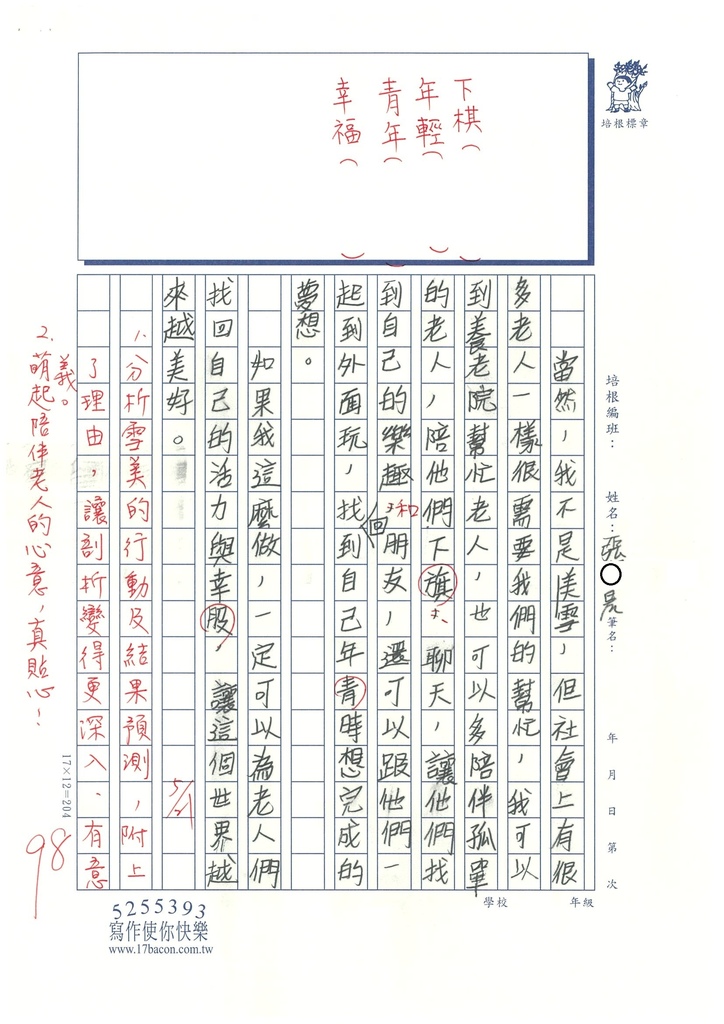 下棋（ ）
年輕（ ）
青年（ ）
幸福（ ）
培根標章
培根編班：
姓名：張〇晃
筆名：
年 月 日 第 次
學校
年級
當然，我不是渼雪，但社會上有很
多老人一樣很需要我們的幫忙，我可以
到養老院幫忙老人，也可以多陪伴孤單
的老人，陪他們下旗、聊天，讓他們找
到自己的樂趣和朋友，還可以跟他們一
起到外面玩，找回到自己年青時想完成的
夢想。
如果我這麼做，一定可以為老人們
找回自己的活力與幸股，讓這個世界越
來越美好。
5/21
1.分析雪美的行動及結果預測，附上
了理由，讓剖析變得更深入、有意
義。
2.萌起陪伴老人的心意，真貼心！
98
17×12=204
5255393
寫作使你快樂
www.17bacon.com.tw